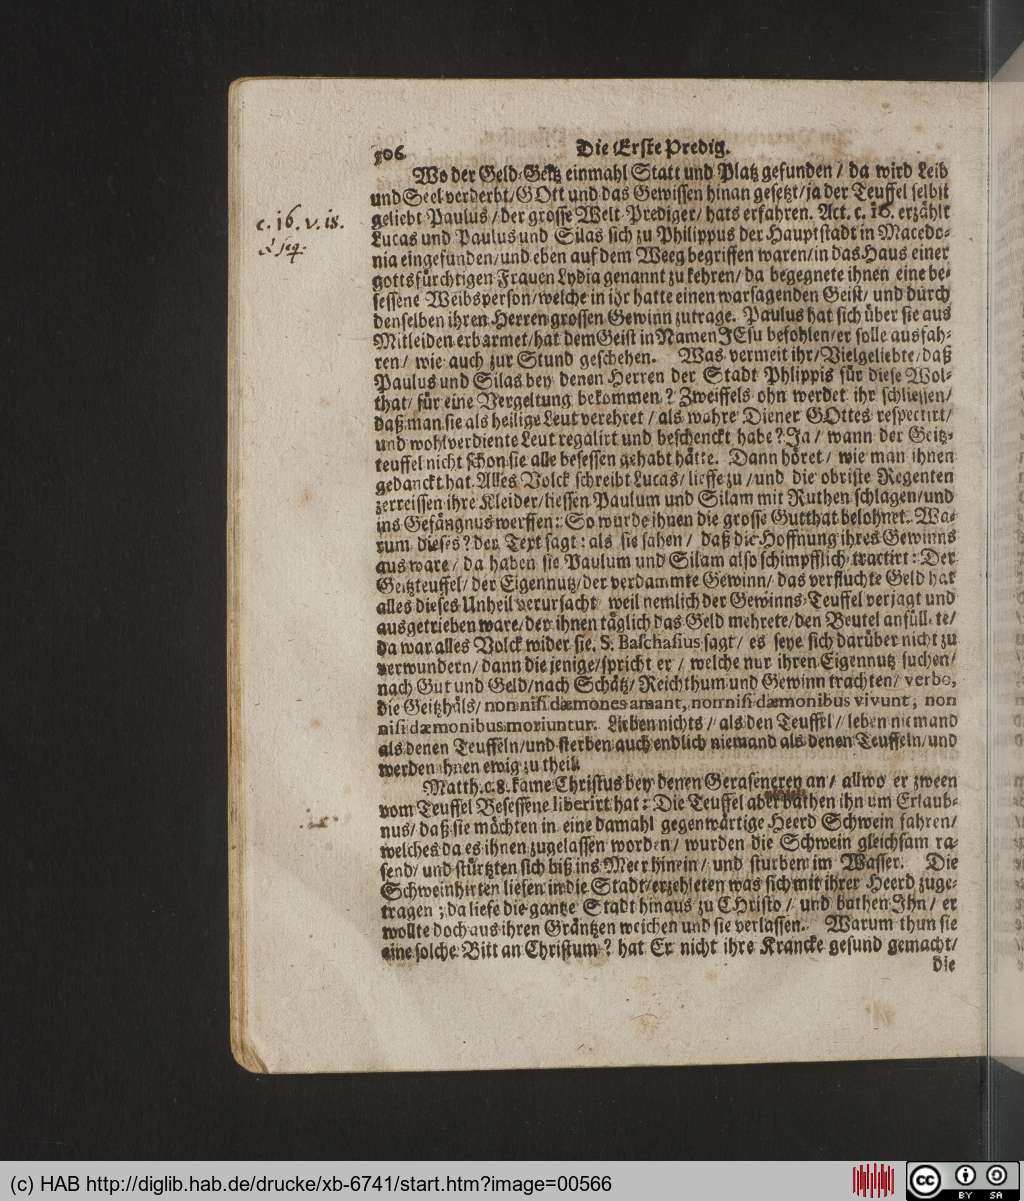 506 Die Erste Predig.
Wo der Geld-Geitz einmahl Statt und Platz gefunden / da wird Leib
und Seel verderbt/GOtt und das Gewissen hinan gesetzt/ja der Teuffel selbst
geliebt Paulus / der grosse Welt Prediger / hats erfahren. Act. c. 16. erzählt
c. 16. v. 18.
& seq.
Lucas und Paulus und Silas sich zu Philippus der Hauptstadt in Macedo-
nia eingefunden/und eben auf dem Weeg begriffen waren/in das Haus einer
gottsfürchtigen Frauen Lydia genannt zu kehren/ da begegnete ihnen eine be-
sessene Weibsperson/welche in ihr hatte einen warsagenden Geist/ und durch
denselben ihren Herren grossen Gewinn zutrage. Paulus hat sich über sie aus
Mitleiden erbarmet/hat dem Geist in Namen JEsu befohlen/er solle ausfah-
ren / wie auch zur Stund geschehen. Was vermeit ihr/Vielgeliebte/daß
Paulus und Silas bey denen Herren der Stadt Phlippis für diese Wol-
that/ für eine Vergeltung bekommen? Zweiffels ohn werdet ihr schliessen/
daß man sie als heilige Leut verehret / als wahre Diener GOttes respectirt/
und wohlverdiente Leut regalirt und beschenckt habe? Ja / wann der Geitz-
teuffel nicht schon sie alle besessen gehabt hätte. Dann höret / wie man ihnen
gedanckt hat. Alles Volck schreibt Lucas/ lieffe zu /und die obriste Regenten
zerreissen ihre Kleider/liessen Paulum und Silam mit Ruthen schlagen/und
ins Gefängnus werffen: So wurde ihnen die grosse Gutthat belohnet. Wa-
rum dieses? der Text sagt: als sie sahen / daß die Hoffnung ihres Gewinns
aus ware / da haben sie Paulum und Silam also schimpfflich tractirt: Der
Geitzteuffel/ der Eigennutz/der verdammte Gewinn/ das verfluchte Geld hat
alles dieses Unheil verursacht/ weil nemlich der Gewinns-Teuffel verjagt und
ausgetrieben ware/der ihnen täglich das Geld mehrete/den Beutel anfüllete/
da war alles Volck wider sie. S. Baschasius sagt/ es seye sich darüber nicht zu
verwundern/ dann die jenige/spricht er / welche nur ihren Eigennutz suchen/
nach Gut und Geld/nach Schätz/ Reichthum und Gewinn trachten/ verbo,
die Geitzhäls/ non nisi dæmones amant, non nisi dæmonibus vivunt, non
nisi dæmonibus moriuntur. Lieben nichts / als den Teuffel / leben niemand
als denen Teuffeln/und sterben auch endlich niemand als denen Teuffeln/und
werden ihnen ewig zu theil.
Matth. c. 8. kame Christus bey denen Geraseneren an / allwo er zween
vom Teuffel Besessene liberirt hat: Die Teuffel aber bathen ihn um Erlaub-
nus/ daß sie möchten in eine damahl gegenwärtige Heerd Schwein fahren/
welches da es ihnen zugelassen worden / wurden die Schwein gleichsam ra-
send/ und stürtzten sich biß ins Meer hinein / und sturben im Wasser. Die
Schweinhirten liefen in die Stadt/erzehleten was sich mit ihrer Heerd zuge-
tragen ; da liefe die gantze Stadt hinaus zu CHristo / und bathen Ihn / er
wollte doch aus ihren Gräntzen weichen und sie verlassen. Warum thun sie
eine solche Bitt an Christum? hat Er nicht ihre Krancke gesund gemacht/
die
(c) HAB http://diglib.hab.de/drucke/xb-6741/start.htm?image=00566
cc BY SA